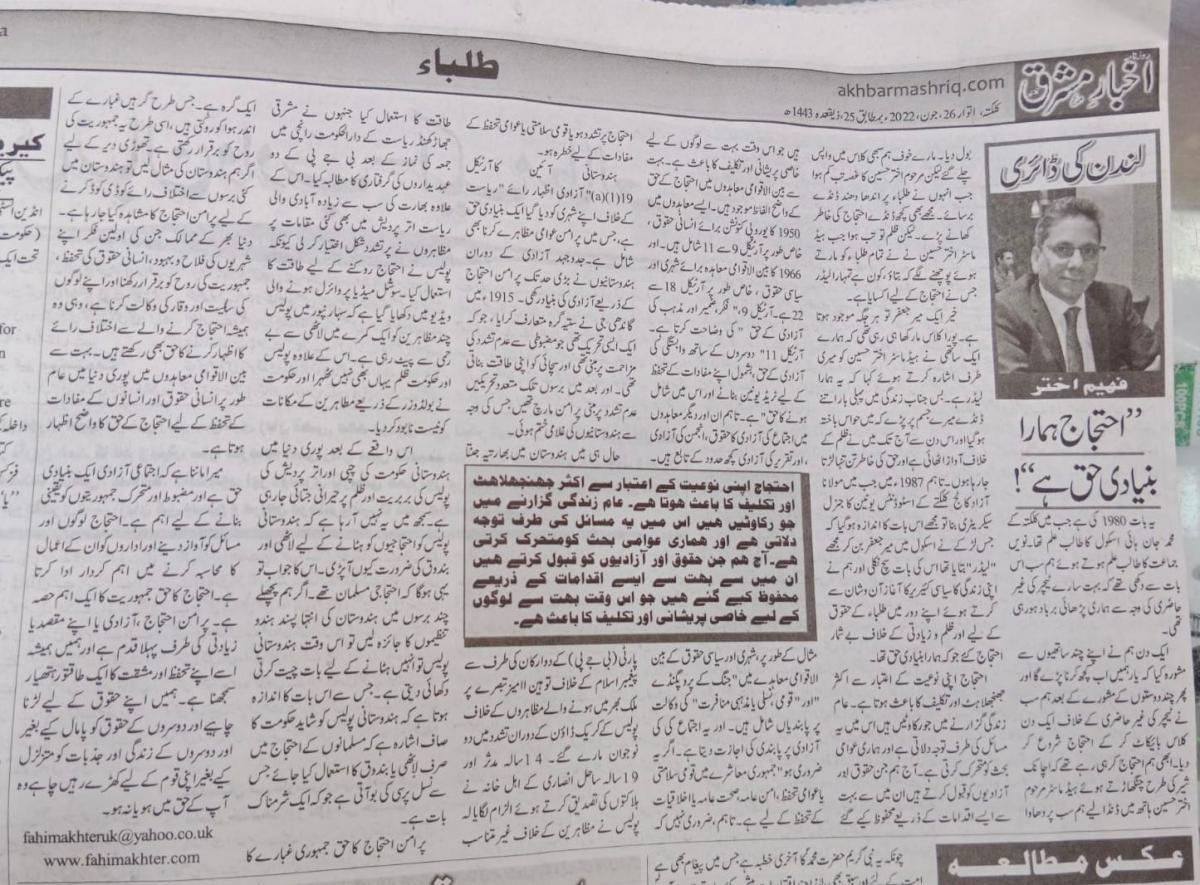 طلباء
روزنامہ
اخبارِ مشرق
akhbarmashriq.com
کلکتہ، اتوار، 26، جون، 2022، بمطابق 25، ذیقعدہ 1443ھ
لندن کی ڈائری
فہیم اختر
”احتجاج ہمارا
بنیادی حق ہے“!
یہ بات 1980 کی ہے جب میں کلکتہ کے
محمد جان ہائی اسکول کا طالب علم تھا۔ نویں
جماعت کا طالب علم ہوتے ہوئے ہم سب اس
بات سے دکھی تھے کہ بہت سارے ٹیچر کی غیر
حاضری کی وجہ سے ہماری پڑھائی برباد ہو رہی
تھی۔
ایک دن ہم نے اپنے چند ساتھیوں سے
مشورہ کیا کہ یار ہمیں اب کچھ کرنا پڑے گا اور
پھر چند دوستوں کے مشورے کے بعد ہم سب
نے ٹیچر کی غیر حاضری کے خلاف ایک دن
کلاس بائیکاٹ کر کے احتجاج شروع کر
دیا۔ ابھی ہم احتجاج کر ہی رہے تھے کہ اچانک
شیر کی طرح چنگھاڑتے ہوئے ہیڈ ماسٹر مرحوم
اختر حسین ہاتھ میں ڈنڈا لیے ہم سب پر دھاوا
بول دیا۔ مارے خوف ہم سبھی کلاس میں واپس
چلے گئے لیکن مرحوم اختر حسین کا غصہ تب کم ہوا
جب انہوں نے طلباء پر اندھا دھند ڈنڈے
برسائے۔ مجھے بھی کچھ ڈنڈے احتجاج کی خاطر
کھانے پڑے۔ لیکن ظلم تو تب ہوا جب ہیڈ
ماسٹر اختر حسین نے تمام طلباء کو مارتے
ہوئے پوچھنے لگے کہ بتاؤ، کون ہے تمہارا لیڈر
جس نے احتجاج کے لیے اکسایا ہے۔
خیر ایک میر جعفر تو ہر جگہ موجود ہوتا
ہے۔ پورا کلاس مار کھا ہی رہی تھی کہ ہمارے
ایک ساتھی نے ہیڈ ماسٹر اختر حسین کو میری
طرف اشارہ کرتے ہوئے کہا کہ یہ ہمارا
لیڈر ہے۔ بس جناب زندگی میں پہلی بار اتنے
ڈنڈے میرے جسم پر پڑے کہ میں حواس باختہ
ہو گیا اور اس دن سے آج تک میں نے ظلم کے
خلاف آواز اٹھائی ہے اور حق کی خاطر تن تنہا لڑتا
جا رہا ہوں۔ تاہم 1987 میں، جب میں مولانا
آزاد کالج کلکتے کے اسٹوڈنٹس یونین کا جنرل
سیکریٹری بنا تو مجھے اس بات کا اندازہ ہو گیا کہ
جس لڑکے نے اسکول میں میر جعفر بن کر مجھے
”لیڈر“ بتایا تھا اس کی بات سچ نکلی اور ہم نے
اپنی زندگی کا سیاسی کیریر کا آغاز آن وشان سے
کرتے ہوئے اپنے دور میں طلباء کے حقوق
کے لیے اور ظلم و زیادتی کے خلاف بے شمار
احتجاج کئے جو کہ ہمارا بنیادی حق تھا۔
احتجاج اپنی نوعیت کے اعتبار سے اکثر
جھنجھلاہٹ اور تکلیف کا باعث ہوتا ہے۔ عام
زندگی گزارنے میں جو رکاوٹیں ہیں اس میں یہ
مسائل کی طرف توجہ دلاتی ہے اور ہماری عوامی
بحث کو متحرک کرتی ہے۔ آج ہم جن حقوق اور
آزادیوں کو قبول کرتے ہیں ان میں سے بہت
سے ایسے اقدامات کے ذریعے محفوظ کیے گئے
ہیں جو اس وقت بہت سے لوگوں کے لیے
خاصی پریشانی اور تکلیف کا باعث ہے۔ بہت
سے بین الاقوامی معاہدوں میں احتجاج کے حق
کے واضح الفاظ موجود ہیں۔ ایسے معاہدوں میں
1950 کا یوروپی کنونشن برائے انسانی حقوق،
خاص طور پر آرٹیکل 9 سے 11 شامل ہیں۔ اور
1966 کا بین الاقوامی معاہدہ برائے شہری اور
سیاسی حقوق، خاص طور پر آرٹیکل 18 سے
22 ہے۔ آرٹیکل 9، ”فکر، ضمیر اور مذہب کی
آزادی کے حق“ کی وضاحت کرتا ہے۔
آرٹیکل 11 ”دوسروں کے ساتھ وابستگی کی
آزادی کے حق، بشمول اپنے مفادات کے تحفظ
کے لیے ٹریڈ یونین بنانے اور اس میں شامل
ہونے کا حق“ ہے۔ تاہم ان اور دیگر معاہدوں
میں اجتماع کی آزادی کا حقوق، انجمن کی آزادی
، اور تقریر کی آزادی کچھ حدود کے تابع ہیں۔
احتجاج اپنی نوعیت کے اعتبار سے اکثر جھنجھلاھٹ
اور تکلیف کا باعث ھوتا ھے۔ عام زندگی گزارنے میں
جو رکاوٹیں ھیں اس میں یہ مسائل کی طرف توجہ
دلاتی ھے اور ھماری عوامی بحث کو متحرک کرتی
ھے۔ آج ھم جن حقوق اور آزادیوں کو قبول کرتے ھیں
ان میں سے بھت سے ایسے اقدامات کے ذریعے
محفوظ کیے گئے ھیں جو اس وقت بھت سے لوگوں
کے لیے خاصی پریشانی اور تکلیف کا باعث ھے۔
مثال کے طور پر، شہری اور سیاسی حقوق کے بین
الاقوامی معاہدے میں ”جنگ کے پروپگنڈے
“اور ”قومی، نسلی یا مذہبی منافرت“ کی وکالت
پر پابندیاں شامل ہیں۔ اور یہ اجتماع کی کی
آزادی پر پابندی کی اجازت دیتا ہے۔ اگر یہ
ضروری ہو ”جمہوری معاشرے میں قومی سلامتی
یا عوامی تحفظ، امن عامہ، صحت عامہ یا اخلاقیات
کے تحفظ کے لیے ہے۔ تاہم، ضروری نہیں کہ
احتجاج پر تشدد ہو یا قومی سلامتی یا عوامی تحفظ کے
مفادات کے لیے خطرہ ہو۔
ہندوستانی آئین کا آرٹیکل
19(1)(a)” آزادی اظہار رائے“ ریاست
کے خلاف اپنے شہری کو دیا گیا ایک بنیادی حق
ہے، جس میں پر امن عوامی مظاہرے کرنا بھی
شامل ہے۔ جدوجہد آزادی کے دوران
ہندوستانیوں نے بڑی حد تک پر امن احتجاج
کے ذریعے آزادی کی بنیاد رکھی۔ 1915ء میں
گاندھی جی نے ستیہ گرہ متعارف کرایا، جو کہ
ایک ایسی تحریک تھی جو مضبوطی سے عدم تشدد کی
مزاحمت پر مبنی تھی اور سچائی کو اپنی طاقت بناتی
تھی۔ اور بعد میں برسوں تلک متعدد تحریکیں
عدم تشدد پر مبنی پر امن مارچ تھیں، جس کی وجہ
سے ہندوستانیوں کی غلامی ختم ہوئی۔
حال ہی میں ہندوستان میں بھارتیہ جنتا
پارٹی (بی جے پی) کے دو ارکان کی طرف سے
پیغمبر اسلام کے خلاف توہین آمیز تبصرے پر
ملک بھر میں ہونے والے مظاہروں کے خلاف
پولیس کے کریک ڈاؤن کے دوران تشدد میں دو
نوجوان مارے گئے۔ 14 سالہ مدثر اور
19 سالہ ساحل انصاری کے اہل خانہ نے
ہلاکتوں کی تصدیق کرتے ہوئے الزام لگایا کہ
پولیس نے مظاہرین کے خلاف غیر متناسب
طاقت کا استعمال کیا جنہوں نے مشرقی
جھاڑکھنڈ ریاست کے دارالحکومت رانچی میں
جمعہ کی نماز کے بعد بی جے پی کے دو
عہدیداروں کی گرفتاری کا مطالبہ کیا۔ اس کے
علاوہ بھارت کی سب سے زیادہ آبادی والی
ریاست اتر پردیش میں بھی کئی مقامات پر
مظاہروں نے پر تشدد شکل اختیار کر لی کیونکہ
پولیس نے احتجاج روکنے کے لیے طاقت کا
استعمال کیا۔ سوشل میڈیا پر وائرل ہونے والی
ویڈیو میں دکھایا گیا ہے کہ سہارنپور میں پولیس
چند مظاہرین کو ایک کمرے میں لاٹھی سے بے
رحمی سے پیٹ رہی ہے۔ اس کے علاوہ پولیس
اور حکومت ظلم یہاں بھی نہیں ٹھہرا اور حکومت
نے بولڈوزر کے ذریعے مظاہرین کے مکانات
کو نیست نابود کر دیا۔
اس واقعے کے بعد پوری دنیا میں
ہندوستانی حکومت کی چپی اور اتر پردیش کی
پولیس کی بربریت اور ظلم پر حیرانی جتائی جا رہی
ہے۔ سمجھ میں یہ نہیں آ رہا ہے کہ ہندوستانی
پولیس کو احتجاجیوں کو ہٹانے کے لیے لاٹھی اور
بندوق کی ضرورت کیوں آ پڑی۔ اس کا جواب تو
یہی ہوگا کہ احتجاجی مسلمان تھے۔ اگر ہم پچھلے
چند برسوں میں ہندوستان کی انتہا پسند ہندو
تنظیموں کا جائزہ لیں تو اس وقت ہندوستانی
پولیس تو انہیں ہٹانے کے لیے بات چیت کرتی
دکھائی دیتی ہے۔ جس سے اس بات کا اندازہ
ہوتا ہے کہ ہندوستانی پولیس کو شاید حکومت کا
صاف اشارہ ہے کہ مسلمانوں کے احتجاج میں
صرف لاٹھی یا بندوق کا استعمال کیا جائے جس
سے نسل پرسی کی بو آتی ہے جو کہ ایک شرمناک
بات ہے۔
پر امن احتجاج کا حق جمہوری غبارے کا
ایک گرہ ہے۔ جس طرح گرہیں غبارے کے
اندر ہوا کو روکتی ہیں، اسی طرح یہ جمہوریت کی
روح کو برقرار رکھتی ہے۔ تھوڑی دیر کے لیے
اگر ہم ہندوستان کی مثال لیں تو ہندوستان میں
کئی برسوں سے اختلاف رائے کو ڈی کوڈ کرنے
کے لیے پر امن احتجاج کا مشاہدہ کیا جا رہا ہے۔
دنیا بھر کے ممالک جن کی اولین فکر اپنے
شہریوں کی فلاح و بہبود، انسانی حقوق کی تحفظ،
جمہوریت کی روح کو برقرار رکھنا اور اپنے لوگوں
کی سالمیت اور وقار کی وکالت کرنا ہے، وہی وہ
ہمیشہ احتجاج کرنے والے سے اختلاف رائے
کا اظہار کرنے کا حق بھی رکھتے ہیں۔ بہت سے
بین الاقوامی معاہدوں میں پوری دنیا میں عام
طور پر انسانی حقوق اور انسانوں کے مفادات
کے تحفظ کے لیے احتجاج کے حق کا واضح اظہار
ہوتا ہے۔
میرا ماننا ہے کہ اجتماعی آزادی ایک بنیادی
حق ہے اور مضبوط اور متحرک جمہوریتوں کو یقینی
بنانے کے لیے اہم ہے۔ احتجاج لوگوں اور
مسائل کو آواز دینے اور اداروں کو ان کے اعمال
کا محاسبہ کرنے میں اہم کردار ادا کرتا
ہے۔ احتجاج کا حق جمہوریت کا ایک اہم حصہ
ہے۔ پر امن احتجاج، آزادی یا اپنے مقصد یا
زیادتی کی طرف پہلا قدم ہے اور ہمیں ہمیشہ
اسے اپنے تحفظ اور مشقت کا ایک طاقتور ہتھیار
سمجھنا ہے۔ ہمیں اپنے حقوق کے لیے لڑنا
چاہیے اور دوسروں کے حقوق کو پامال کیے بغیر
اور دوسروں کے زندگی اور جذبات کو متزلزل
کیے بغیر اپنی قوم کے لیے کھڑے رہیں چاہے وہ
آپ کے حق میں ہو یا نہ ہو۔
fahimakhteruk@yahoo.co.uk
www.fahimakhter.com
عکس مطالعہ
چونکہ یہ نبی کریم حضرت محمدؐ کا آخری خطبہ ہے جس میں پیغام بھی ہے